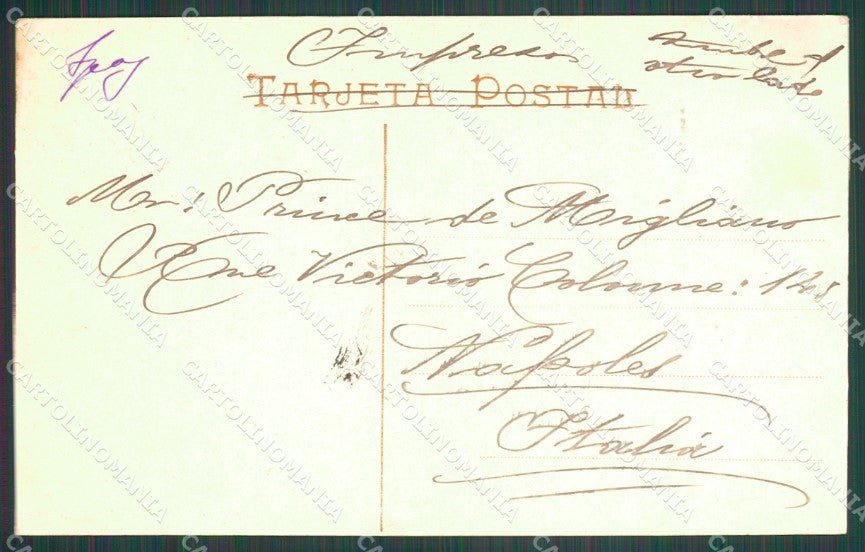 Impresos
timbre al
otro lado
TARJETA POSTAL
Mr: Prince de Migliano
Rue Victorio Colonne: 14
Nápoles
Italiá
CARTOLINOMANIA